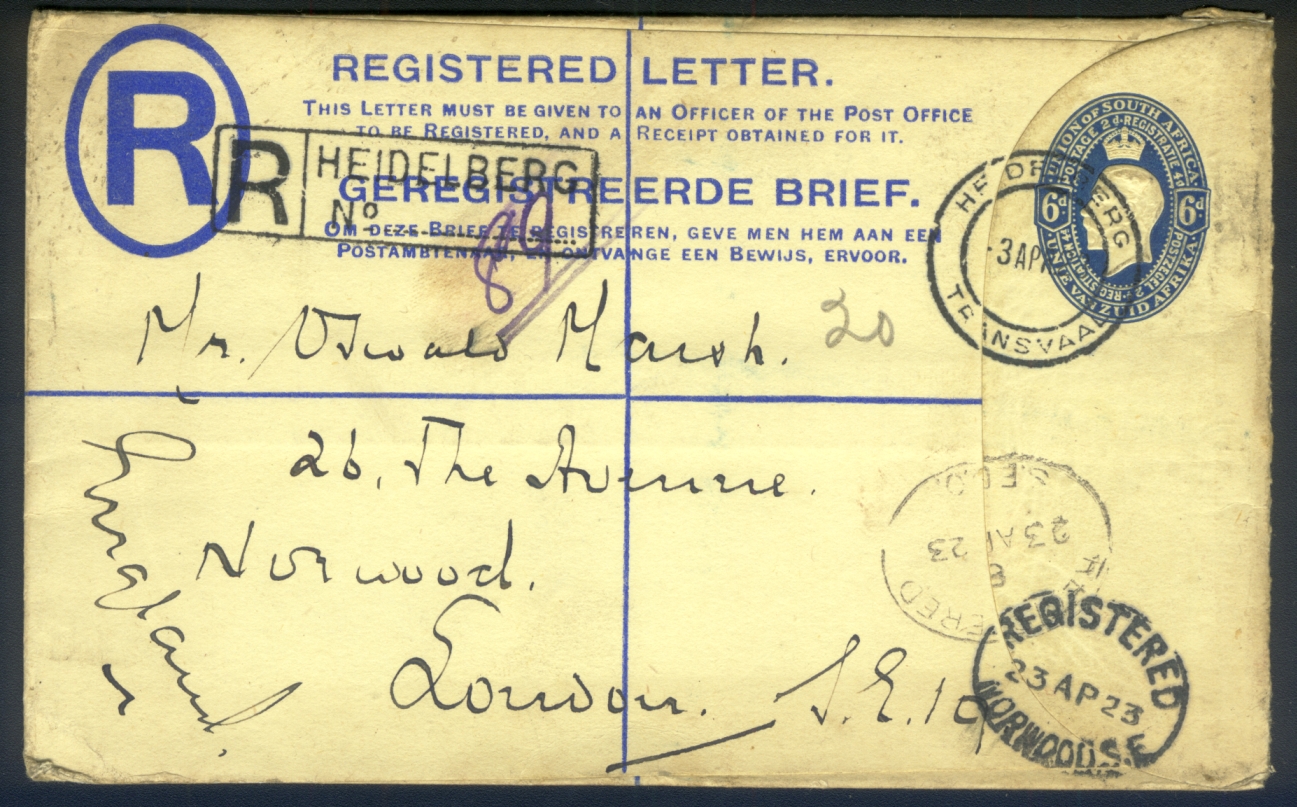 R
REGISTERED LETTER.
THIS LETTER MUST BE GIVEN TO AN OFFICER OF THE POST OFFICE
TO BE REGISTERED, AND A RECEIPT OBTAINED FOR IT.
R HEIDELBERG
No
GEREGISTREERDE BRIEF.
OM DEZE BRIEF TE REGISTREREN, GEVE MEN HEM AAN EEN
POSTAMBTENAAR, EN ONTVANGE EEN BEWIJS, ERVOOR.
UNION OF SOUTH AFRICA
POSTAGE 2d. REGISTRATIE 4d
6d 6d
POSTZEGEL 2d. REGISTRATION 4d
UNIE VAN ZUID AFRIKA
HEIDELBERG
3 APR
TRANSVAAL
Mr. Oswald Marsh.
20
26, The Avenue.
Norwood.
London. S.E. 19
England.
23 AP 23
REGISTERED
23 AP 23
NORWOOD S.E.